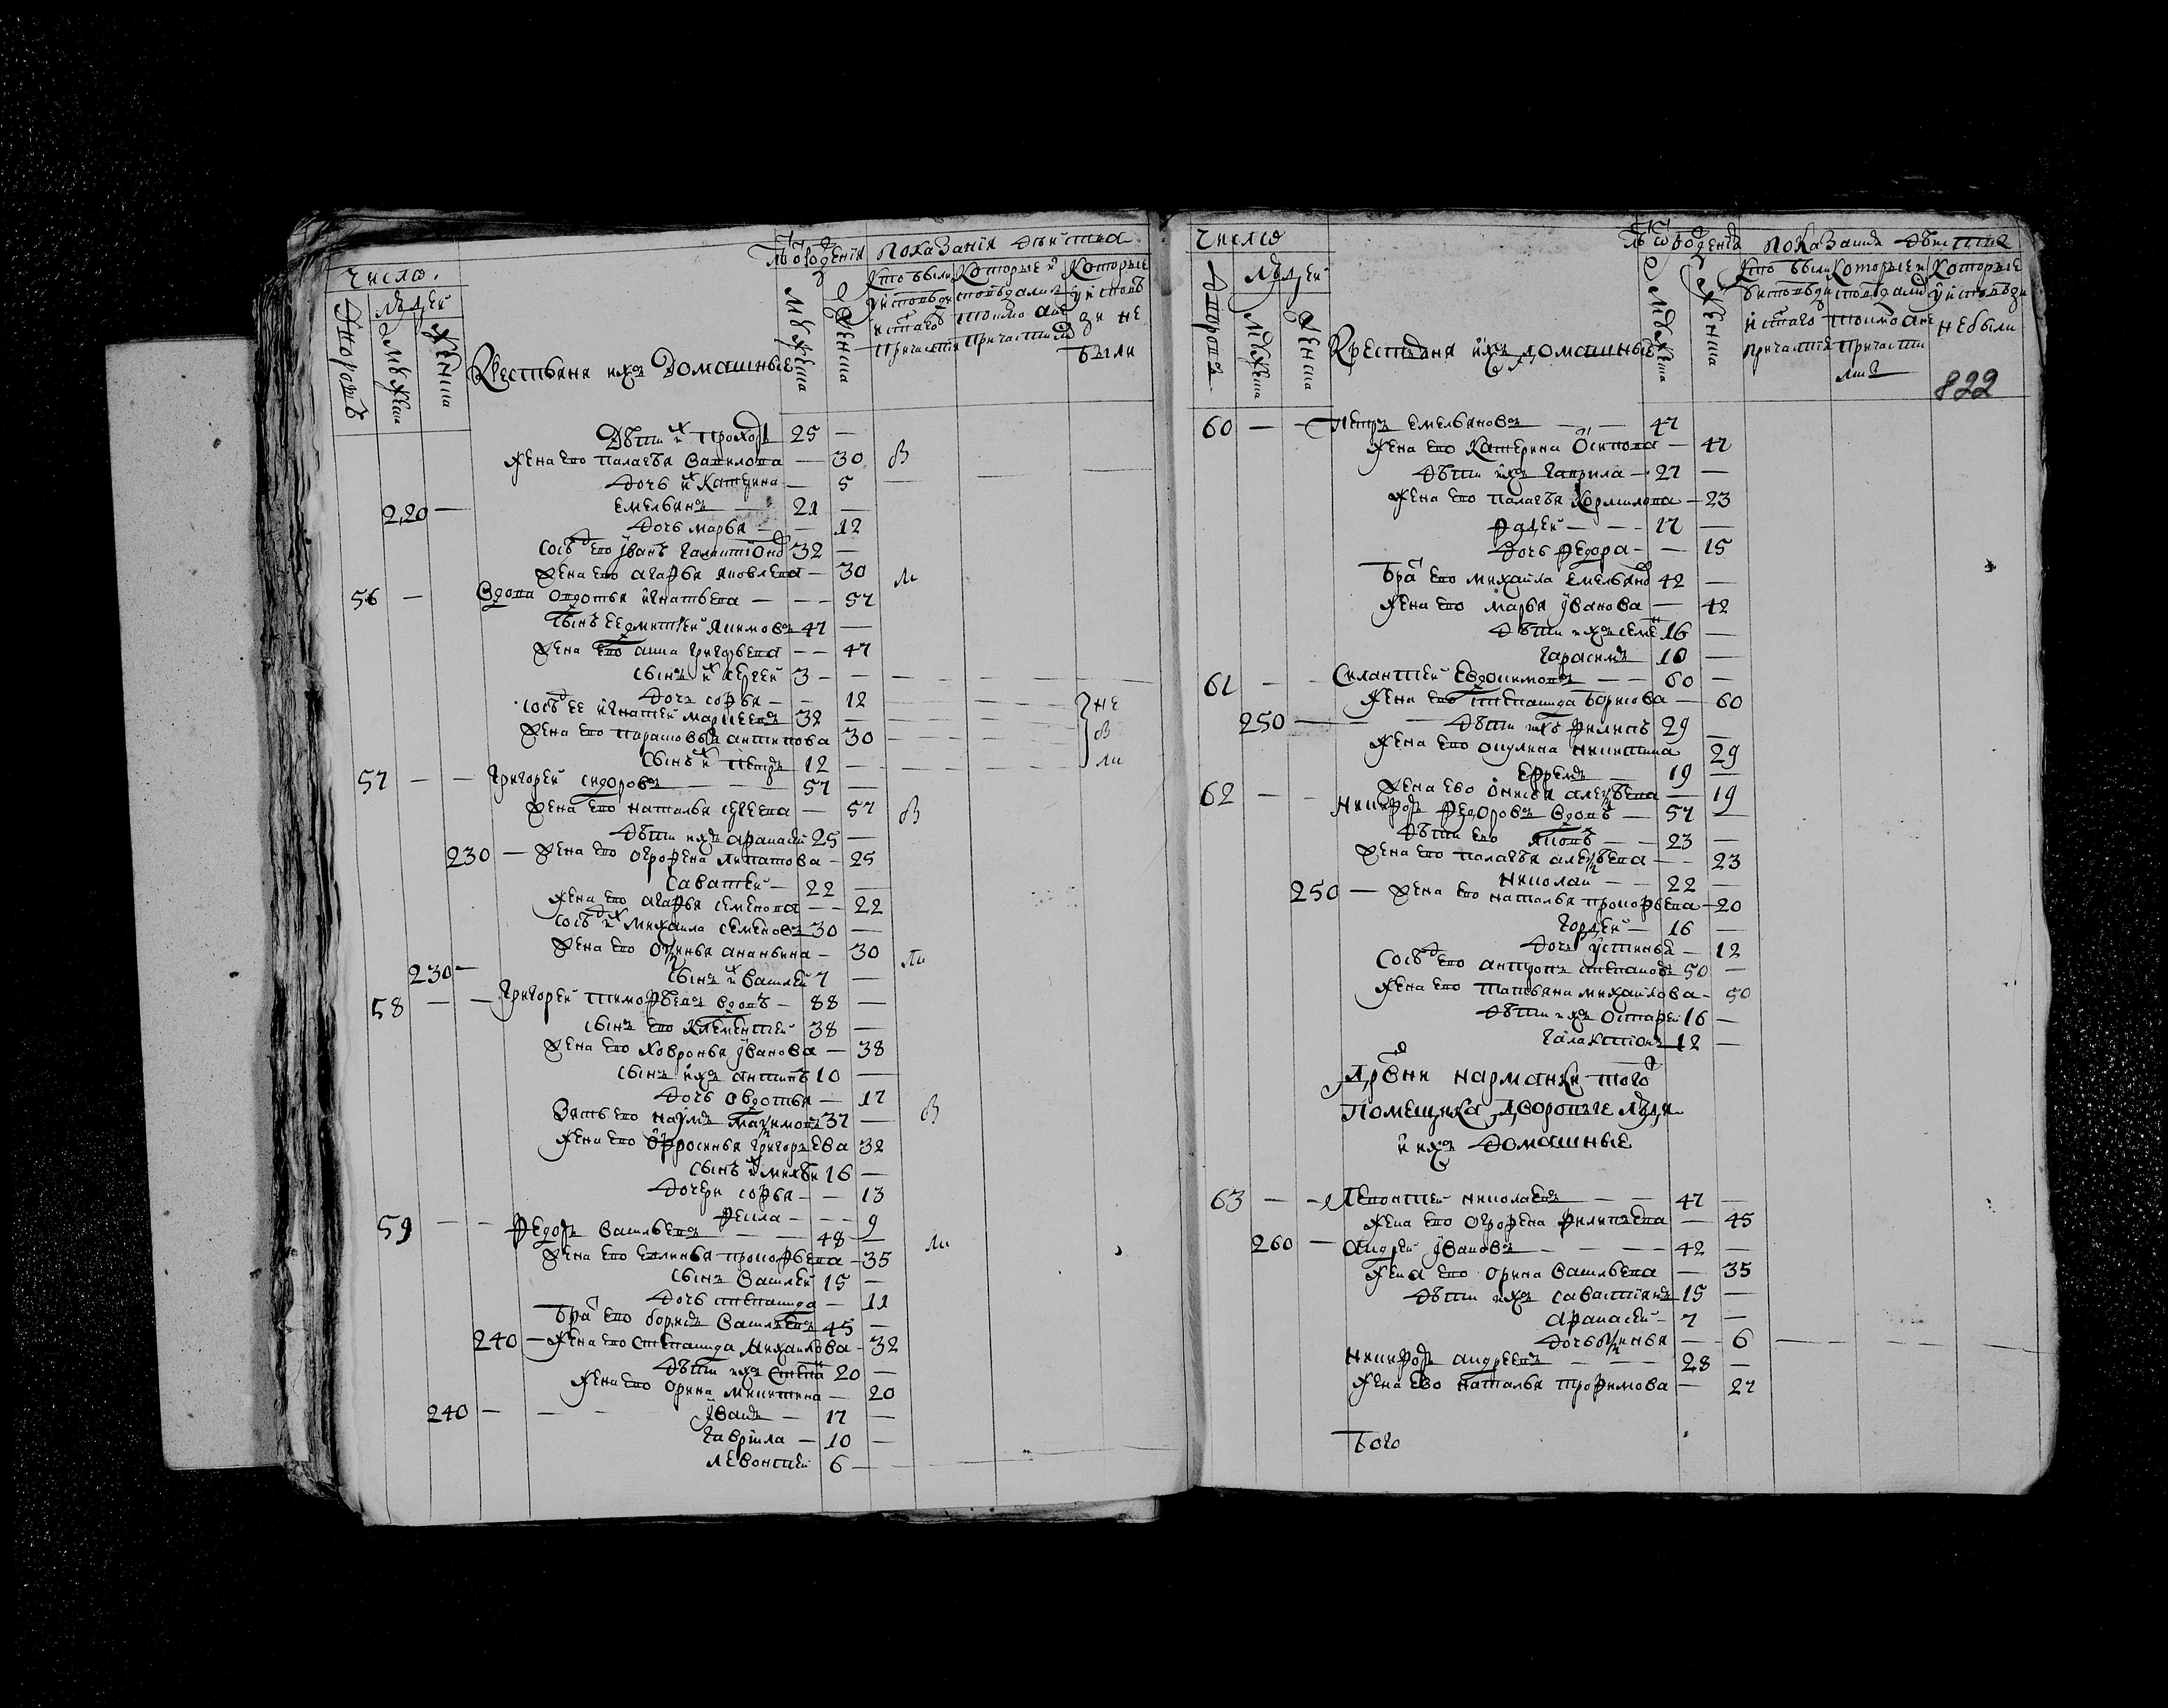 Число.
Дворовъ
Людей
Мужеска
Женска
Крестьяня ихъ Домашныя
Лѣта от рожденія
Мужеска
Женска
Показанія действа
Кто были
у исповѣди
и с̃таго
причастия
Которые и
исповѣдались
токмо а не
причастились
Которые
у исповѣ
ди не
были
Дѣти и Прохоръ 25 —
Жена ево Палагѣя Вавилова — 30 В
Дочь и Катерина — 5
220 — Емельянъ — 21 —
Дочь Марья — — 12
Сосѣд ево Иванъ Галактіонов 32 —
Жена ево Агафья Яковлева — 30 ли
56 — Вдова Овдотья Игнатьева — — — 57
Сынъ ее Дмитрей Якимовъ 47 —
Жена ево Анна Григорьева — — 47
Сынъ и Сергей 3 — —
Дочь Софья — — 12
Сосѣд ее Игнатей Маркеевъ 32 — не
Жена ево Парасковья Антипова 30 — в
Сынъ и Петръ 12 — ли
57 — — Григорей Сидоровъ — — — 57 —
Жена ево Наталья Сергеева — 57 В
Дѣти ихъ Афанасей 25 —
230 — Жена ево Огрофена Липатова — 25
Саватей — 22 —
Жена ево Агафья Семенова — — 22
Сосѣд их Михаила Семеновъ 30 —
Жена ево Оксинья Ананьина — 30 ли
230 — Сынъ и Василей 7 —
58 — — Григорей Тимофѣевъ вдовъ — 88 —
Сынъ ево Клементей 38 —
Жена ево Ховронья Иванова — 38
Сынъ ихъ Антипъ 10 —
Дочь Овдотья — 17
Зять ево Наумъ Максимовъ 37 — В
Жена ево Ефросинья Григорьева 32
Сынъ и Михѣи 16 —
Дочери Софья — — 13
Фекла — — — 9
59 — — Федоръ Васильевъ — — 48 —
Жена ево Еллинья Прокофьева — 35 ли
Сынъ Василей 15 —
Дочь Степанида — 11
Братъ ево Борисъ Васильевъ 45 —
240 — Жена ево Степанида Михаилова — 32
Дѣти ихъ Степан 20 —
Жена ево Орина Микитина — 20
240 — — — Иванъ — 17 —
Гаврила — 10 —
Левонтей 6 —
Число
Дворовъ
Людей
Мужеска
Женска
Крестьяня ихъ домашныя
Лѣта от рожденія
Мужеска
Женска
Показания действа
Кто были
у исповѣди
и с̃таго
причастія
Которые и
исповѣдались
токмо а не
причасти
лись
Которые
у исповѣди
не были
822
60 — — Петръ Емельяновъ — — 47
Жена ево Катерина Осипова — 47
Дѣти ихъ Гаврила — 27 —
Жена ево Палагѣя Кормилова — 23
Фадей — — — 17 —
Дочь Федора — — 15
Братъ ево Михаила Емельянов 42 —
Жена ево Марья Иванова — 42
Дѣти ихъ Семен 16 —
Гарасимъ 10 —
61 — — Силантей Евдокимовъ — — 60 —
Жена ево Степанида Борисова — 60
250 — — — Дѣти ихъ Филипъ 29 —
Жена ево Окулина Никитина 29
Ефремъ — 19 —
Жена ево Онисья Алексѣева — 19
62 — — Никифоръ Федоровъ вдовъ — 57 —
Дѣти ево Яковъ — — 23 —
Жена ево Палагѣя Алексѣева — — 23
Николай — — 22 —
250 — Жена ево Наталья Прокофьева — 20
Гордей — 16 —
Дочь Устинья — 12
Сосѣд ево Антропъ Степановъ 50 —
Жена ево Татьяна Михаилова — 50
Дѣти ихъ Остафей 16 —
Галактіонъ 12 —
Дрвни Нарманки того
Помещика Дворовые люди
и ихъ Домашныя
63 — — Левонтей Николаевъ — — 47 —
Жена ево Огрофена Филипьева — 45
260 — Андрей Ивановъ — — — — 42 —
Жена ево Орина Васильева — 35
Дѣти ихъ Савастіянъ 15 —
Афанасей — 7 —
Дочь Оксинья — — 6
Никифоръ Андреевъ — — — 28 —
Жена ево Наталья Трофимова — 27
Бого